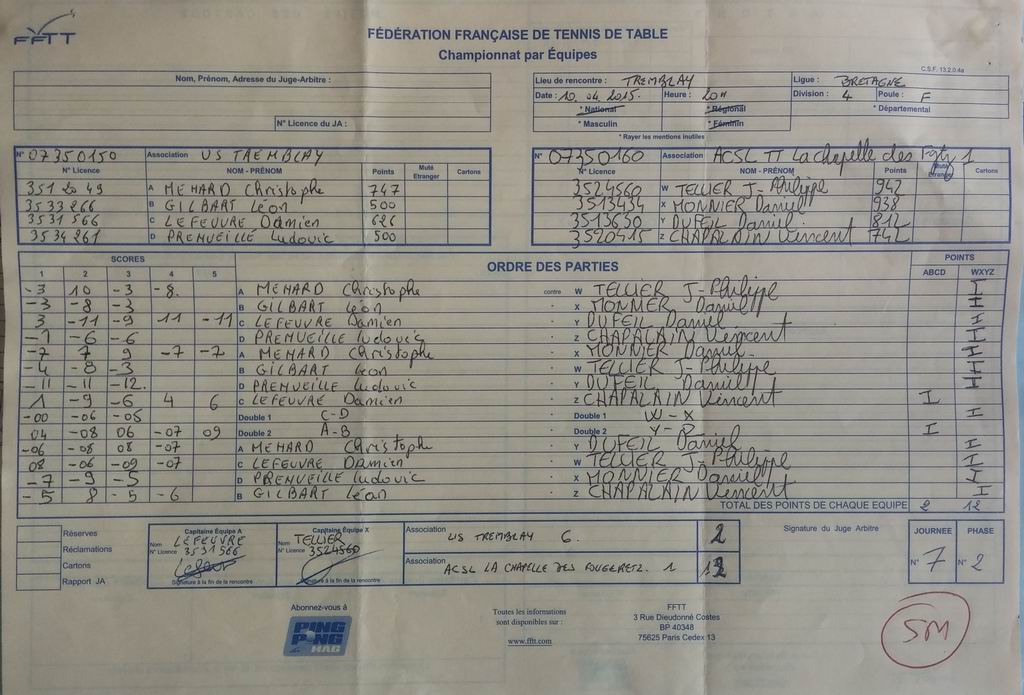 FFTT
FÉDÉRATION FRANÇAISE DE TENNIS DE TABLE
Championnat par Équipes
C.S.F. 13.2.0.4a
Nom, Prénom, Adresse du Juge-Arbitre :
N° Licence du JA :
Lieu de rencontre : TREMBLAY Ligue : BRETAGNE
Date : 10.04.2015. Heure : 20H Division : 4 Poule : F
* National * Régional * Départemental
* Masculin * Féminin
* Rayer les mentions inutiles
N° 07350150 Association US TREMBLAY
N° Licence NOM - PRÉNOM Points Muté Etranger Cartons
351 20 49 A MEHARD Christophe 747
3533266 B GILBART Léon 500
3531566 C LEFEUVRE Damien 626
3534261 D PREMVEILLE Ludovic 500
N° 07350160 Association ACSL TT La chapelle des Fgtz 1
N° Licence NOM - PRÉNOM Points Muté Etranger Cartons
3524560 W TELLIER J-Philippe 942
3513434 X MONNIER Daniel 938
3513630 Y DUFEIL Daniel 812
3520415 Z CHAPALAIN Vincent 742
SCORES ORDRE DES PARTIES POINTS
1 2 3 4 5 ABCD WXYZ
-3 10 -3 -8. A MEHARD Christophe contre W TELLIER J-Philippe I
-3 -8 -3 B GILBART Léon X MONNIER Daniel I
3 -11 -9 -11 -11 C LEFEUVRE Damien Y DUFEIL Daniel I
-7 -6 -6 D PREMVEILLE Ludovic Z CHAPALAIN Vincent I
-7 7 9 -7 -7 A MEHARD Christophe X MONNIER Daniel I
-4 -8 -3 B GILBART Léon W TELLIER J-Philippe I
-11 -11 -12. D PREMVEILLE Ludovic Y DUFEIL Daniel I
1 -9 -6 4 6 C LEFEUVRE Damien Z CHAPALAIN Vincent I
-00 -06 -05 Double 1 C-D Double 1 W-X I
04 -08 06 -07 09 Double 2 A-B Double 2 I
-06 -08 08 -07 A MEHARD Christophe Y DUFEIL Daniel I
08 -06 -09 -07 C LEFEUVRE Damien W TELLIER J-Philippe I
-7 -9 -5 D PREMVEILLE Ludovic X MONNIER Daniel I
-5 8 -5 -6 B GILBART Léon Z CHAPALAIN Vincent I
TOTAL DES POINTS DE CHAQUE EQUIPE 2 12
Réserves
Réclamations
Cartons
Rapport JA
Capitaine Équipe A
Nom LEFEUVRE
N° Licence 3531566
Signature à la fin de la rencontre
Capitaine Équipe X
Nom TELLIER
N° Licence 3524560
Signature à la fin de la rencontre
Association US TREMBLAY 6. 2
Association ACSL LA CHAPELLE DES FOUGERETZ. 1 12
Signature du Juge Arbitre
JOURNEE PHASE
N° 7 N° 2
Abonnez-vous à
PING PONG LE MAG
Toutes les informations
sont disponibles sur :
www.fftt.com
FFTT
3 Rue Dieudonné Costes
BP 40348
75625 Paris Cedex 13